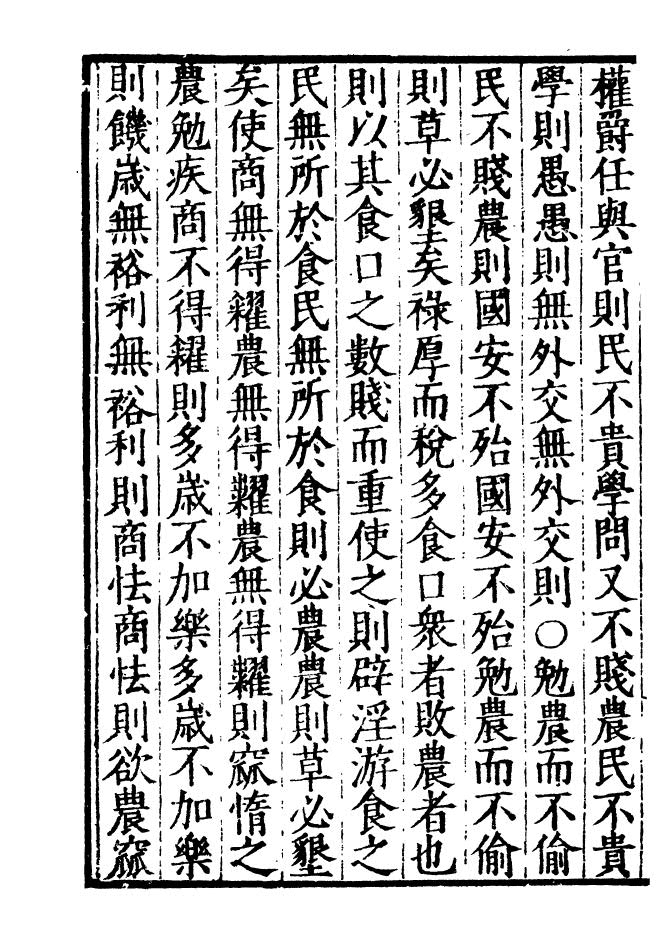 權爵任與官則民不貴學問又不賤農民不貴
學則愚愚則無外交無外交則○勉農而不偷
民不賤農則國安不殆國安不殆勉農而不偷
則草必墾矣祿厚而稅多食口衆者敗農者也
則以其食口之數賤而重使之則辟淫游食之
民無所於食民無所於食則必農農則草必墾
矣使商無得糴農無得糶農無得糶則窳惰之
農勉疾商不得糴則多歲不加樂多歲不加樂
則饑歲無裕利無裕利則商怯商怯則欲農窳